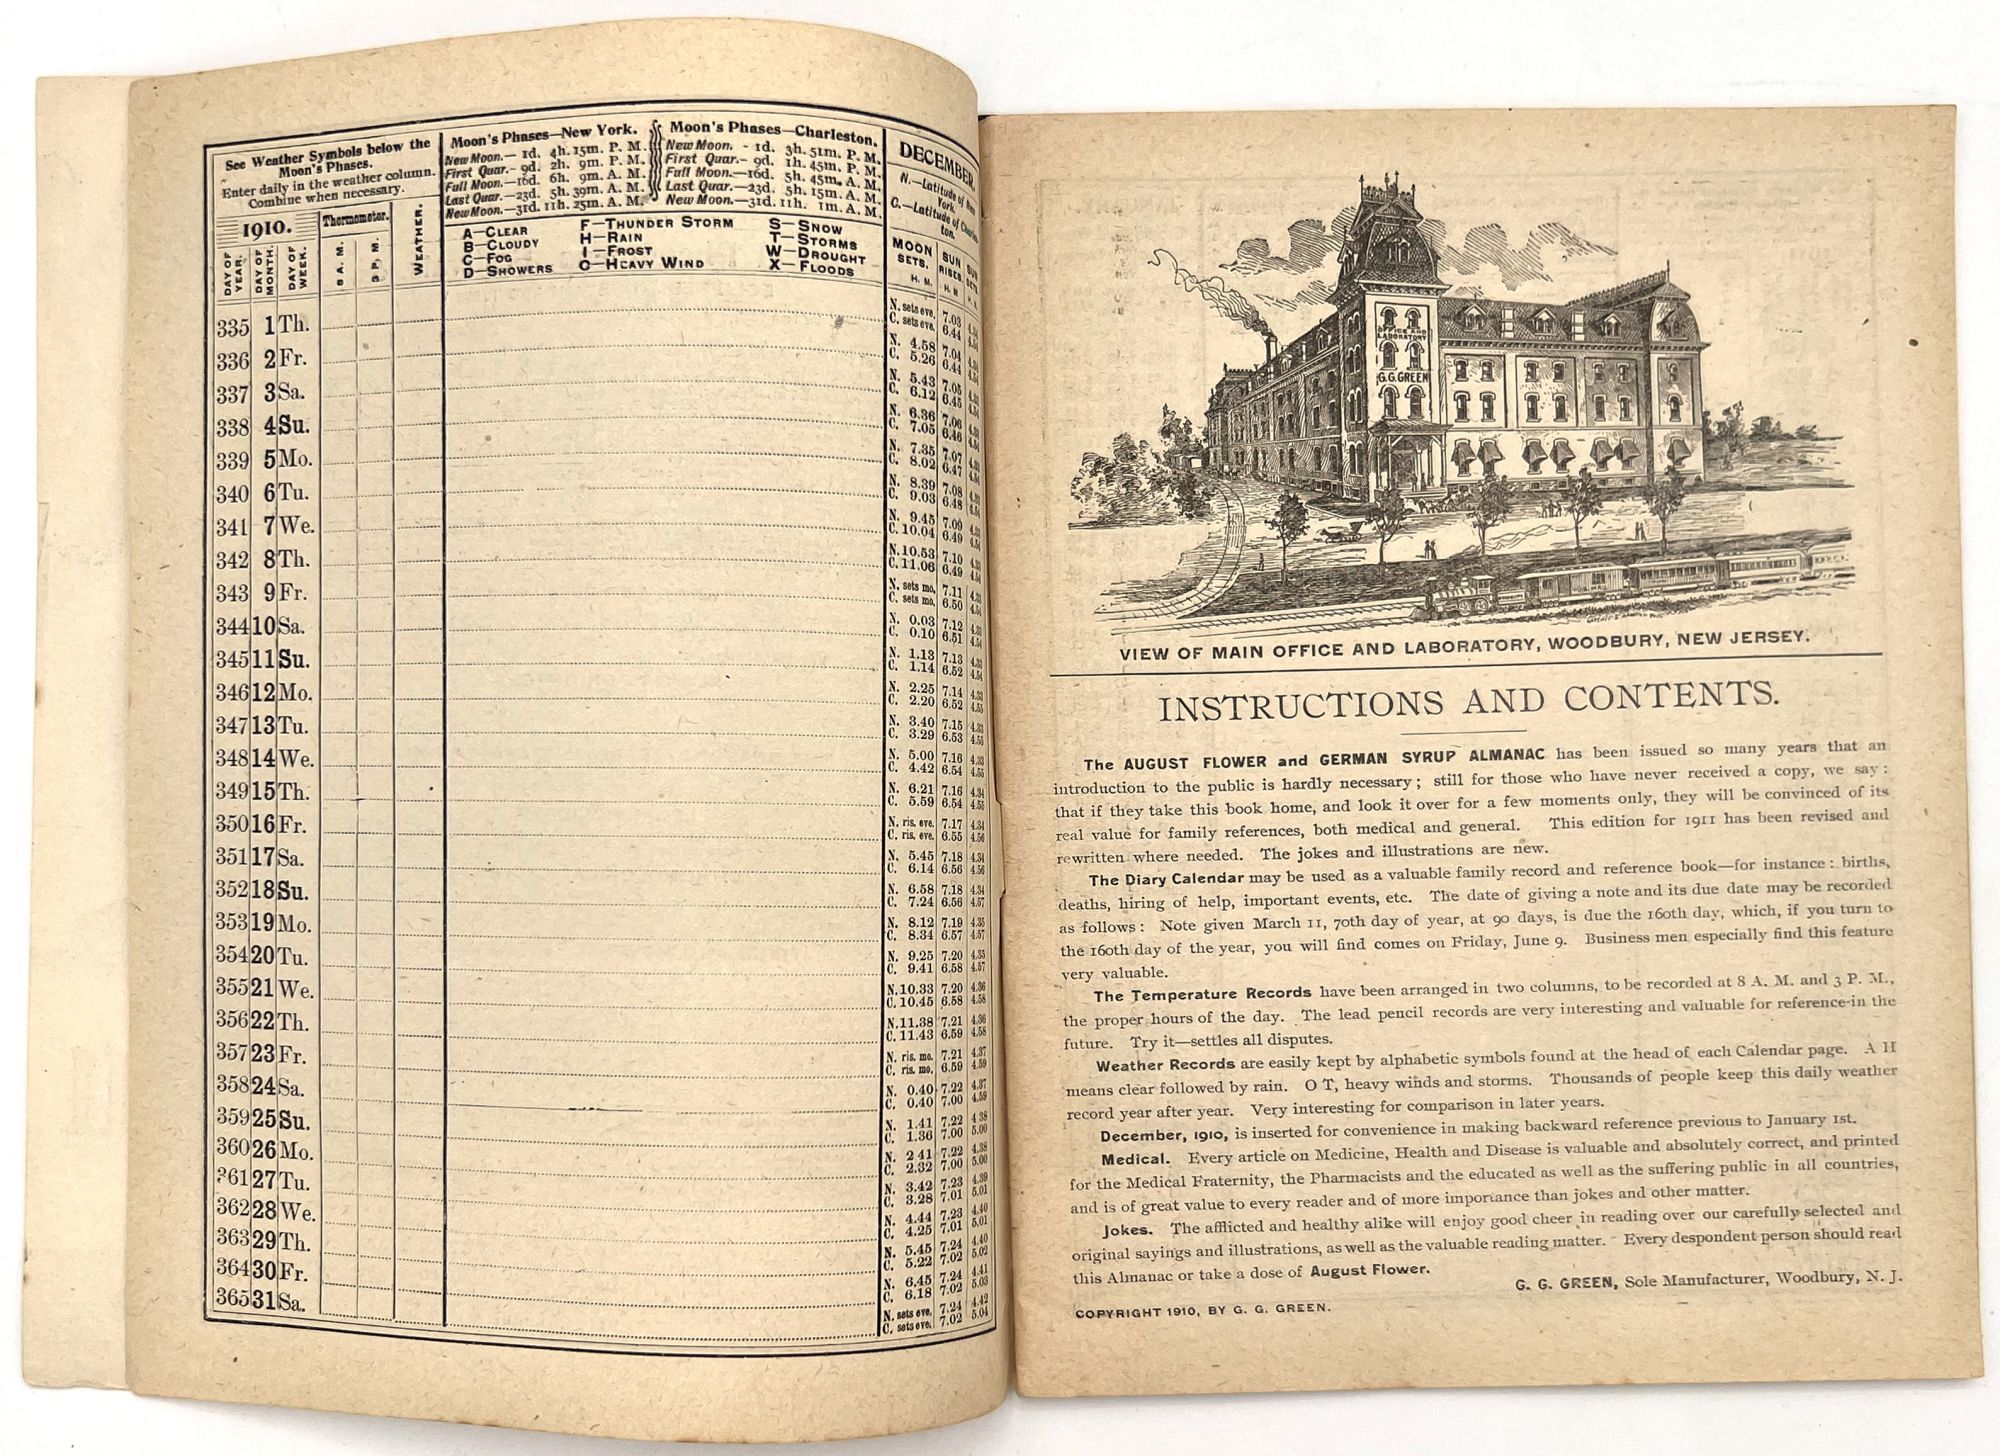 See Weather Symbols below the
Moon's Phases.
Enter daily in the weather column.
Combine when necessary.
1910.
Thermometer.
DAY OF YEAR.
DAY OF MONTH.
DAY OF WEEK.
8 A. M.
3 P. M.
WEATHER.
Moon's Phases—New York.
New Moon.— 1d. 4h. 15m. P. M.
First Quar.- 9d. 2h. 9m. P. M.
Full Moon.—16d. 6h. 9m. A. M.
Last Quar.—23d. 5h. 39m. A. M.
New Moon.—31d. 11h. 25m. A. M.
Moon's Phases—Charleston.
New Moon. - 1d. 3h. 51m. P. M.
First Quar.- 9d. 1h. 45m. P. M.
Full Moon.—16d. 5h. 45m. A. M.
Last Quar.—23d. 5h. 15m. A. M.
New Moon.—31d. 11h. 1m. A. M.
A—CLEAR
B—CLOUDY
C—FOG
D—SHOWERS
F—THUNDER STORM
H—RAIN
I—FROST
O—HEAVY WIND
S—SNOW
T—STORMS
W—DROUGHT
X—FLOODS
DECEMBER.
N.—Latitude of New
York.
C.—Latitude of
ton.
MOON SETS.
SUN RISES.
SUN SETS.
H. M.
H. M.
335 1 Th. N. sets eve. 7.03 4.34
C. sets eve. 6.44
336 2 Fr. N. 4.58 7.04
C. 5.26 6.44 4.54
337 3 Sa. N. 5.43 7.05
C. 6.12 6.45 4.54
338 4 Su. N. 6.36 7.06
C. 7.05 6.46 4.54
339 5 Mo. N. 7.35 7.07
C. 8.02 6.47 4.54
340 6 Tu. N. 8.39 7.08 4.33
C. 9.03 6.48 4.54
341 7 We. N. 9.45 7.09 4.33
C. 10.04 6.49 4.54
342 8 Th. N. 10.53 7.10 4.33
C. 11.06 6.49 4.54
343 9 Fr. N. sets mo. 7.11 4.33
C. sets mo. 6.50 4.54
344 10 Sa. N. 0.03 7.12 4.33
C. 0.10 6.51 4.54
345 11 Su. N. 1.13 7.13 4.33
C. 1.14 6.52 4.54
346 12 Mo. N. 2.25 7.14 4.33
C. 2.20 6.52 4.55
347 13 Tu. N. 3.40 7.15 4.33
C. 3.29 6.53 4.55
348 14 We. N. 5.00 7.16 4.33
C. 4.42 6.54 4.55
349 15 Th. N. 6.21 7.16 4.34
C. 5.59 6.54 4.55
350 16 Fr. N. ris. eve. 7.17 4.34
C. ris. eve. 6.55 4.56
351 17 Sa. N. 5.45 7.18 4.34
C. 6.14 6.56 4.56
352 18 Su. N. 6.58 7.18 4.34
C. 7.24 6.56 4.57
353 19 Mo. N. 8.12 7.19 4.35
C. 8.34 6.57 4.57
354 20 Tu. N. 9.25 7.20 4.35
C. 9.41 6.58 4.57
355 21 We. N. 10.33 7.20 4.36
C. 10.45 6.58 4.58
356 22 Th. N. 11.38 7.21 4.36
C. 11.43 6.59 4.58
357 23 Fr. N. ris. mo. 7.21 4.37
C. ris. mo. 6.59 4.59
358 24 Sa. N. 0.40 7.22 4.37
C. 0.40 7.00 4.59
359 25 Su. N. 1.41 7.22 4.38
C. 1.36 7.00 5.00
360 26 Mo. N. 2 41 7.22 4.38
C. 2.32 7.00 5.00
361 27 Tu. N. 3.42 7.23 4.39
C. 3.28 7.01 5.01
362 28 We. N. 4.44 7.23 4.40
C. 4.25 7.01 5.01
363 29 Th. N. 5.45 7.24 4.40
C. 5.22 7.02 5.02
364 30 Fr. N. 6.45 7.24 4.41
C. 6.18 7.02 5.03
365 31 Sa. N. sets eve. 7.24 4.42
C. sets eve. 7.02 5.04
OFFICE AND
LABORATORY
G.G.GREEN
VIEW OF MAIN OFFICE AND LABORATORY, WOODBURY, NEW JERSEY.
INSTRUCTIONS AND CONTENTS.
The AUGUST FLOWER and GERMAN SYRUP ALMANAC has been issued so many years that an
introduction to the public is hardly necessary; still for those who have never received a copy, we say:
that if they take this book home, and look it over for a few moments only, they will be convinced of its
real value for family references, both medical and general. This edition for 1911 has been revised and
rewritten where needed. The jokes and illustrations are new.
The Diary Calendar may be used as a valuable family record and reference book—for instance: births,
deaths, hiring of help, important events, etc. The date of giving a note and its due date may be recorded
as follows: Note given March 11, 70th day of year, at 90 days, is due the 160th day, which, if you turn to
the 160th day of the year, you will find comes on Friday, June 9. Business men especially find this feature
very valuable.
The Temperature Records have been arranged in two columns, to be recorded at 8 A. M. and 3 P. M.,
the proper hours of the day. The lead pencil records are very interesting and valuable for reference in the
future. Try it—settles all disputes.
Weather Records are easily kept by alphabetic symbols found at the head of each Calendar page. A H
means clear followed by rain. O T, heavy winds and storms. Thousands of people keep this daily weather
record year after year. Very interesting for comparison in later years.
December, 1910, is inserted for convenience in making backward reference previous to January 1st.
Medical. Every article on Medicine, Health and Disease is valuable and absolutely correct, and printed
for the Medical Fraternity, the Pharmacists and the educated as well as the suffering public in all countries,
and is of great value to every reader and of more importance than jokes and other matter.
Jokes. The afflicted and healthy alike will enjoy good cheer in reading over our carefully selected and
original sayings and illustrations, as well as the valuable reading matter. Every despondent person should read
this Almanac or take a dose of August Flower.
G. G. GREEN, Sole Manufacturer, Woodbury, N. J.
COPYRIGHT 1910, BY G. G. GREEN.